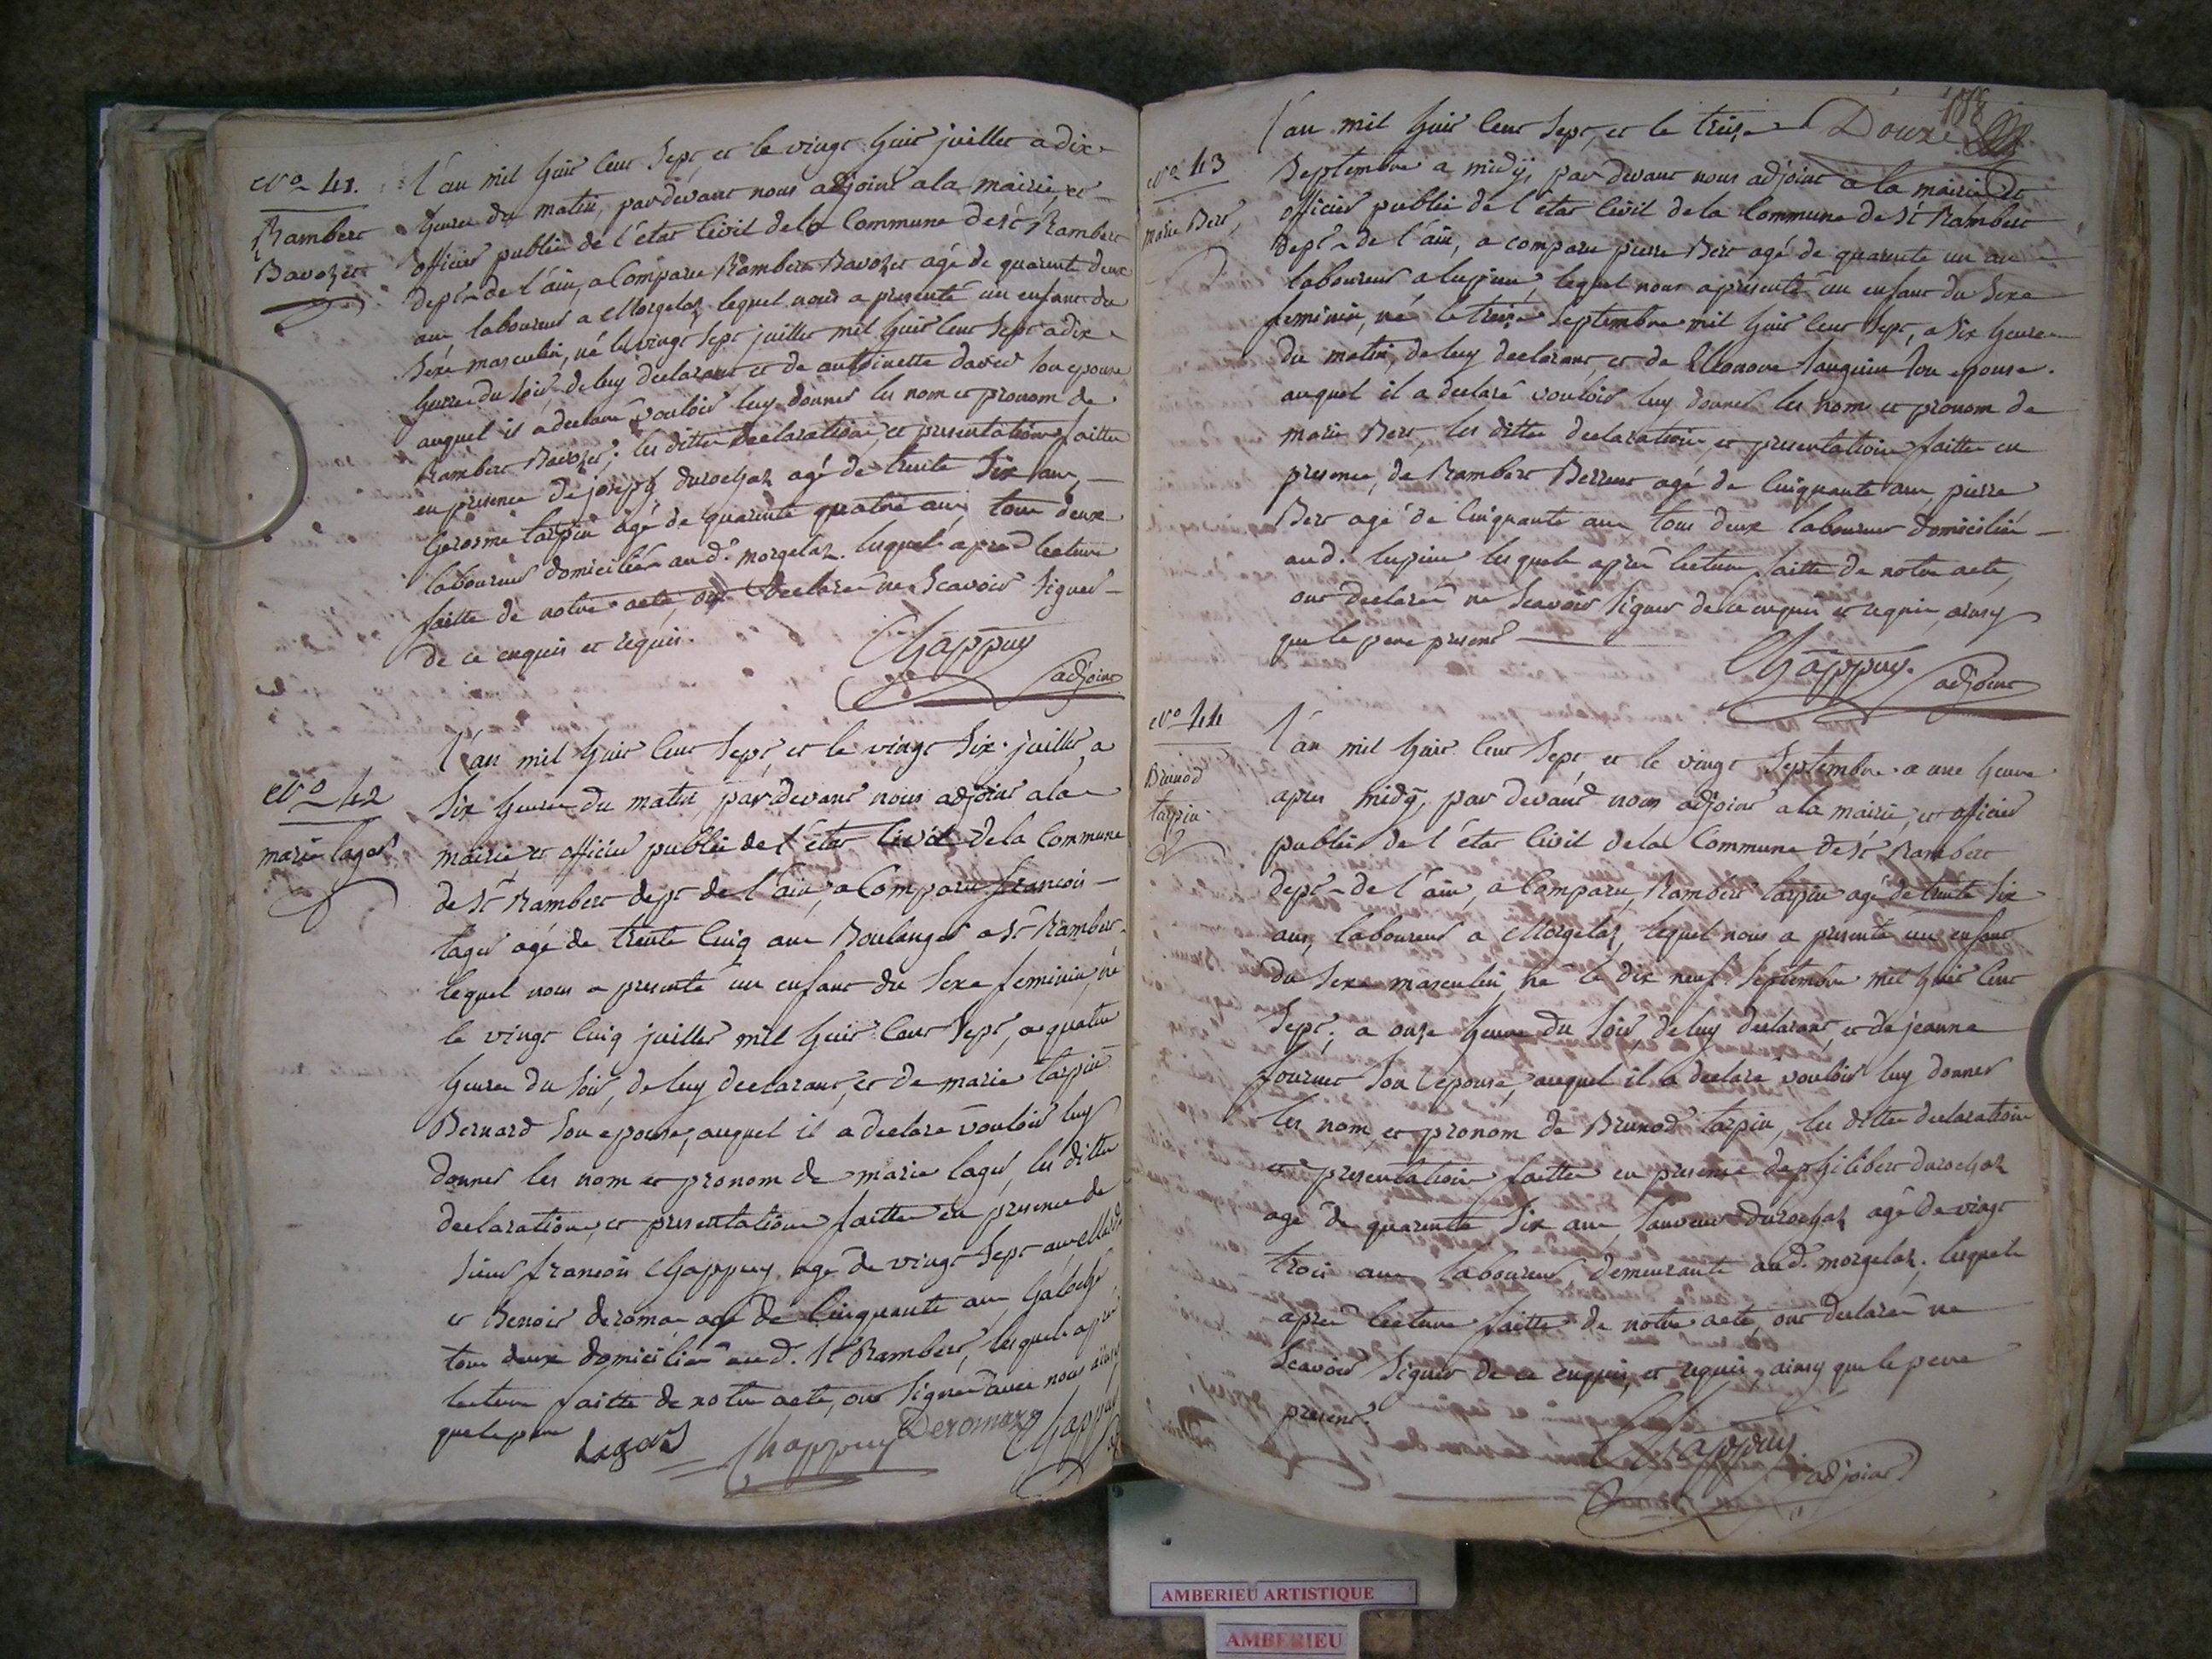 No 41.
Rambert
Ravozet
L'an mil huit cent sept, et le vingt huit juillet a dix
heures du matin, pardevant nous adjoint a la mairie, et
officier public de l'état Civil de la Commune de st Rambert
dept de l'ain, a Comparu Rambert Ravozet agé de quarente deux
ans laboureur a Morgelaz lequel nous a presenté un enfant du
séxe masculin, né le vingt sept juillet mil huit cent sept a dix
heures du soir, de luy declarant et de anthoinette son epouse
auquel il a declaré vouloir luy donner les nom et pronom de
Rambert Ravozet; les dittes declaration et presentation faitte
en presence de joseph durochaz agé de trente six ans,
herosme tarpin agé de quarente quatre ans, tous deux
laboureur domiciliés aud. morgelaz. lesquels apres lecture
faitte de notre acte, ont declarés ne Scavoir Signer
de ce enquis et requis.
Chappuy
adjoint
No 42
marie lager
L'an mil huit cent sept, et le vingt six juillet, a
six heures du matin, pardevant nous adjoint a la
mairie, et officier public de l'état Civil de la Commune
de st Rambert dept de l'ain, a Comparu francois
lager agé de trente cinq ans Boulanger a st Rambert
lequel nous a presenté un enfant du sexe feminin, né
le vingt cinq juillet mil huit cent sept, a quatre
heures du soir, de luy declarant, et de marie tarpin
Bernard son epouse, auquel il a declaré vouloir luy
donner les nom et pronom de marie lager, les dittes
declaration, et presentation faitte en presence de
sieur francois Chappuy agé de vingt sept ans
et Benoit deroma agé de cinquante ans
tous deux domicilies aud. st Rambert, lesquels apres
lecture faitte de notre acte, ont signés avec nous ainsy
que le pere
Lager Chappuy Deromaz Chappuy
188
Douze
No 43
marie Bert
L'an mil huit cent sept, et le treize
Septembre a midy, par devant nous adjoint a la mairie et
officier public de l'état Civil de la Commune de st Rambert
dept de l'ain, a comparu pierre Bert agé de quarente un ans
laboureur a lupieu, lequel nous a presenté un enfant du sexe
feminin, né le treize Septembre mil huit cent sept, a six heures
du matin, de luy declarant, et de Eleonore Sanguin son epouse.
auquel il a declaré vouloir luy donner les nom et pronom de
marie Bert, les dittes declaration, et presentation faitte en
presence, de Rambert agé de cinquante ans pierre
Bert agé de cinquante ans tous deux laboureur domiciliés
aud. lupieu lesquels apres lecture faitte de notre acte,
ont declarés ne scavoir signer de ce enquis et requis, ainsy
que le pere present
Chappuy.
adjoint
No 44
Brunod
tarpin
L'an mil huit cent sept, et le vingt Septembre a une heure
apres midy, par devant nous adjoint a la mairie, et officier
public de l'état Civil de la Commune de st Rambert
dept de l'ain, a Comparu, Rambert tarpin agé de trente six
ans, laboureur a Morgelaz, lequel nous a presenté un enfant
du sexe masculin, né le dix neuf Septembre mil huit cent
sept; a onze heures du soir, de luy declarant, et de jeanne
fournet son epouse, auquel il a declaré vouloir luy donner
les nom, et pronom de Brunod tarpin, les dittes declaration
et presentation faittes en presence de philibert durochaz
agé de quarente six ans, durochaz agé de vingt
trois ans laboureur, demeurants aud. morgelaz; lesquels
apres lecture faitte de notre acte, ont declarés ne
Scavoir Signer de ce enquis, et requis, ainsy que le pere
present.
Chappuy
adjoint
AMBERIEU ARTISTIQUE
AMBERIEU